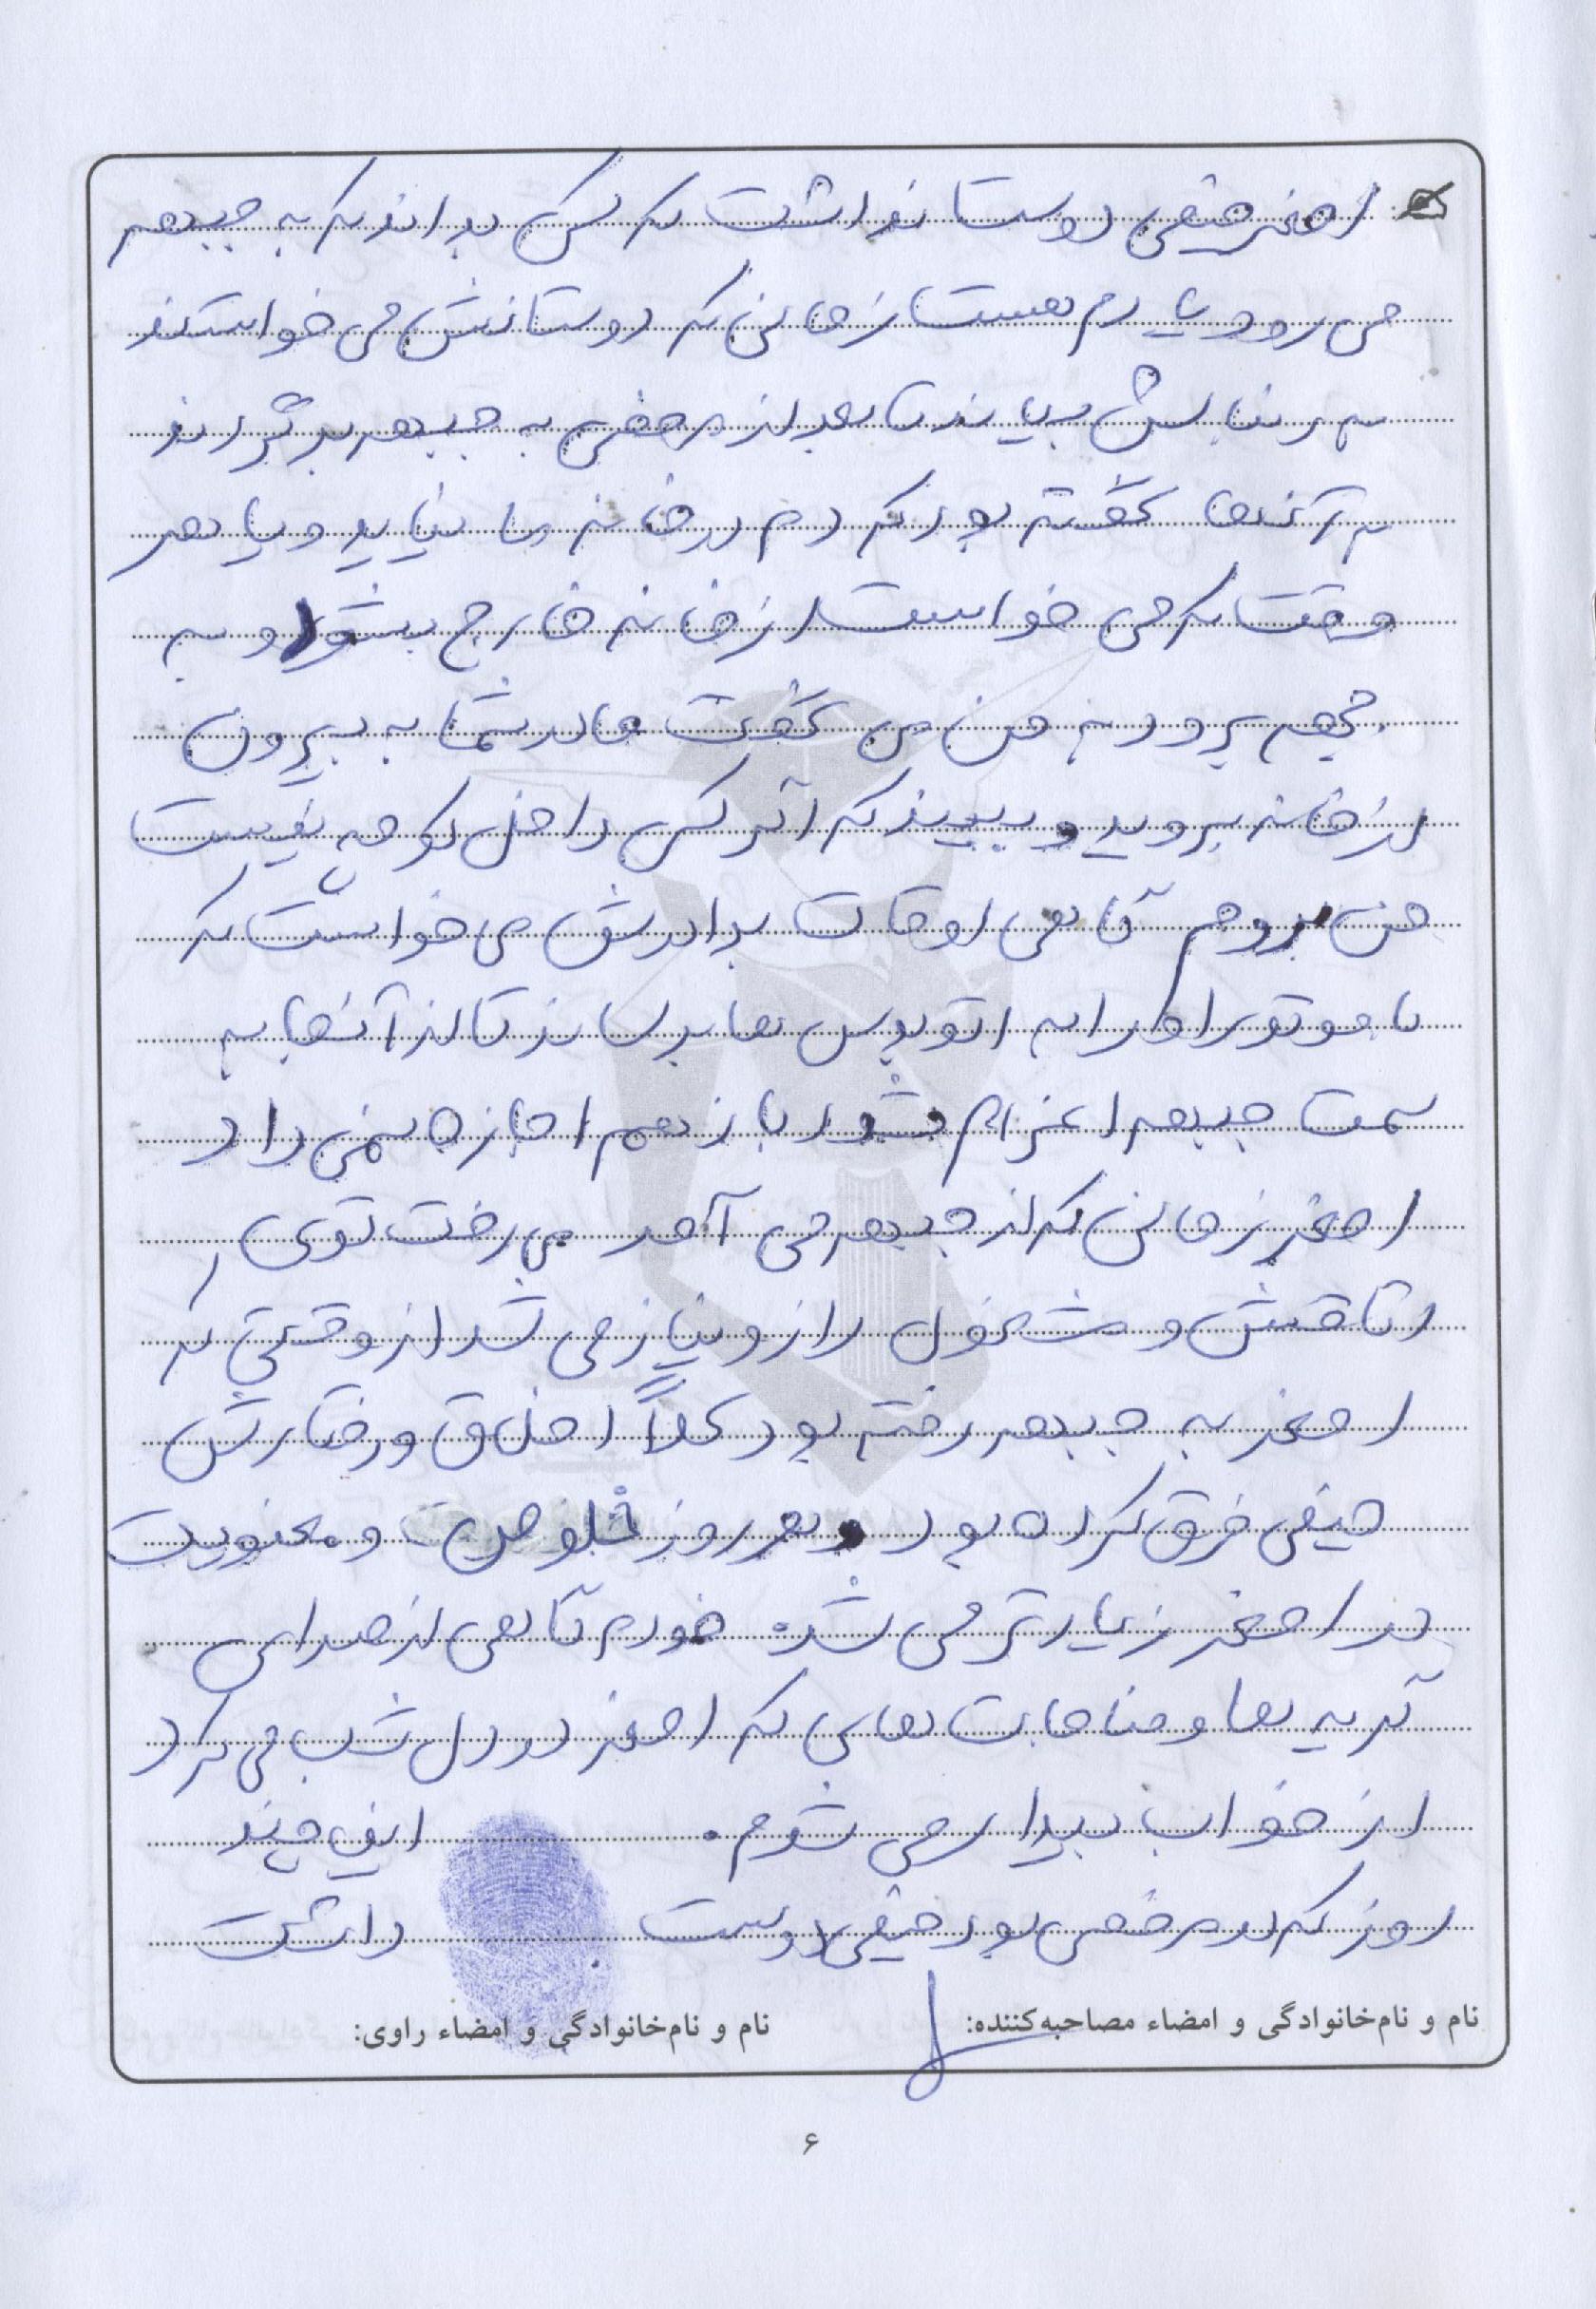 اصغر خیلی دوست نداشت که کسی بداند که به جبهه
می رود یادم هست زمانی که دوستانش می خواستند
به دنبالش بیایند تا بعد از مرخصی به جبهه برگرداند
به آنها گفته بود که دم در خانه ما نیایید و یا هر
وقت که می خواست از خانه خارج بشود و به
جبهه برود به من می گفت مادر شما به بیرون
از خانه بروید و ببینید که اگر کسی داخل کوچه نیست
من بروم گاهی اوقات برادرش می خواست که
با موتور او را به اتوبوس ها برساند تا از آنجا به
سمت جبهه اعزام شود باز هم اجازه نمی داد
اصغر زمانی که از جبهه می آمد می رفت توی
اتاقش و مشغول راز و نیاز می شد از وقتی که
اصغر به جبهه رفته بود کلاً اخلاق و رفتارش
خیلی فرق کرده بود و هر روز خلوص و معنویت
در اصغر زیادتر می شد. خودم گاهی از صدای
گریه ها و مناجات هایی که اصغر در دل شب می کرد
از خواب بیدار می شدم. این چند
روز که در مرخصی بود خیلی دوست داشت
نام و نام‌خانوادگی و امضاء مصاحبه‌کننده: نام و نام‌خانوادگی و امضاء راوی:
۶